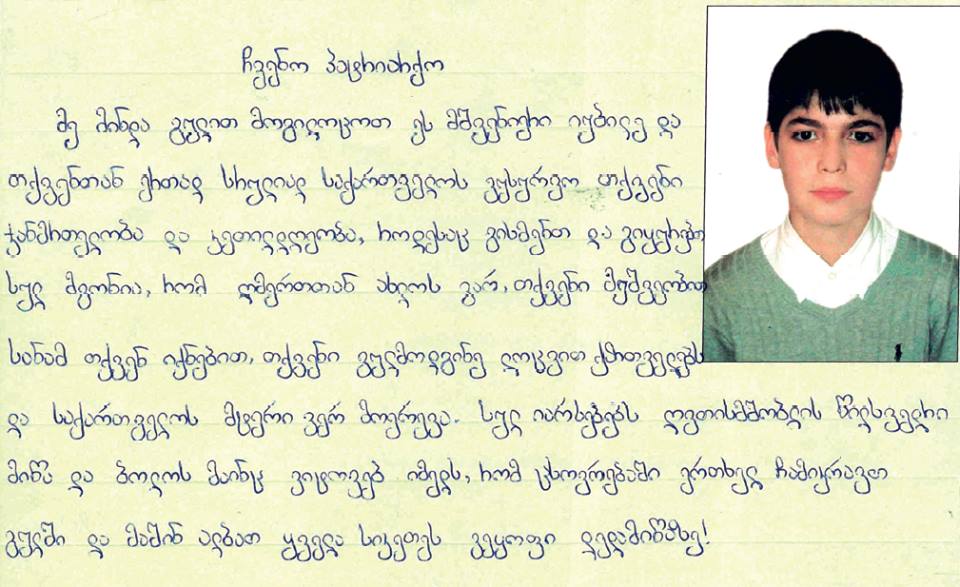 ჩვენო პატრიარქო
მე მინდა გულით მოგილოცოთ ეს მშვენიერი იუბილე და
თქვენთან ერთად სრულიად საქართველოს ვუსურვო თქვენი
ჯანმრთელობა და კეთილდღეობა, როდესაც გისმენთ და გიყურებთ
სულ მგონია, რომ ღმერთთან ახლოს ვარ, თქვენი მეშვეობით
სანამ თქვენ იქნებით, თქვენი გულმოდგინე ლოცვით ქართველებს
და საქართველოს მტერი ვერ მოერევა. სულ იარსებებს ღვთისმშობლის წილხვედრი
მიწა და ბოლოს მაინც ვიტოვებ იმედს, რომ ცხოვრებაში ერთხელ ჩამიკრავთ
გულში და მაშინ ალბათ ყველა სიკეთეს ვეყოფი დედამიწაზე!